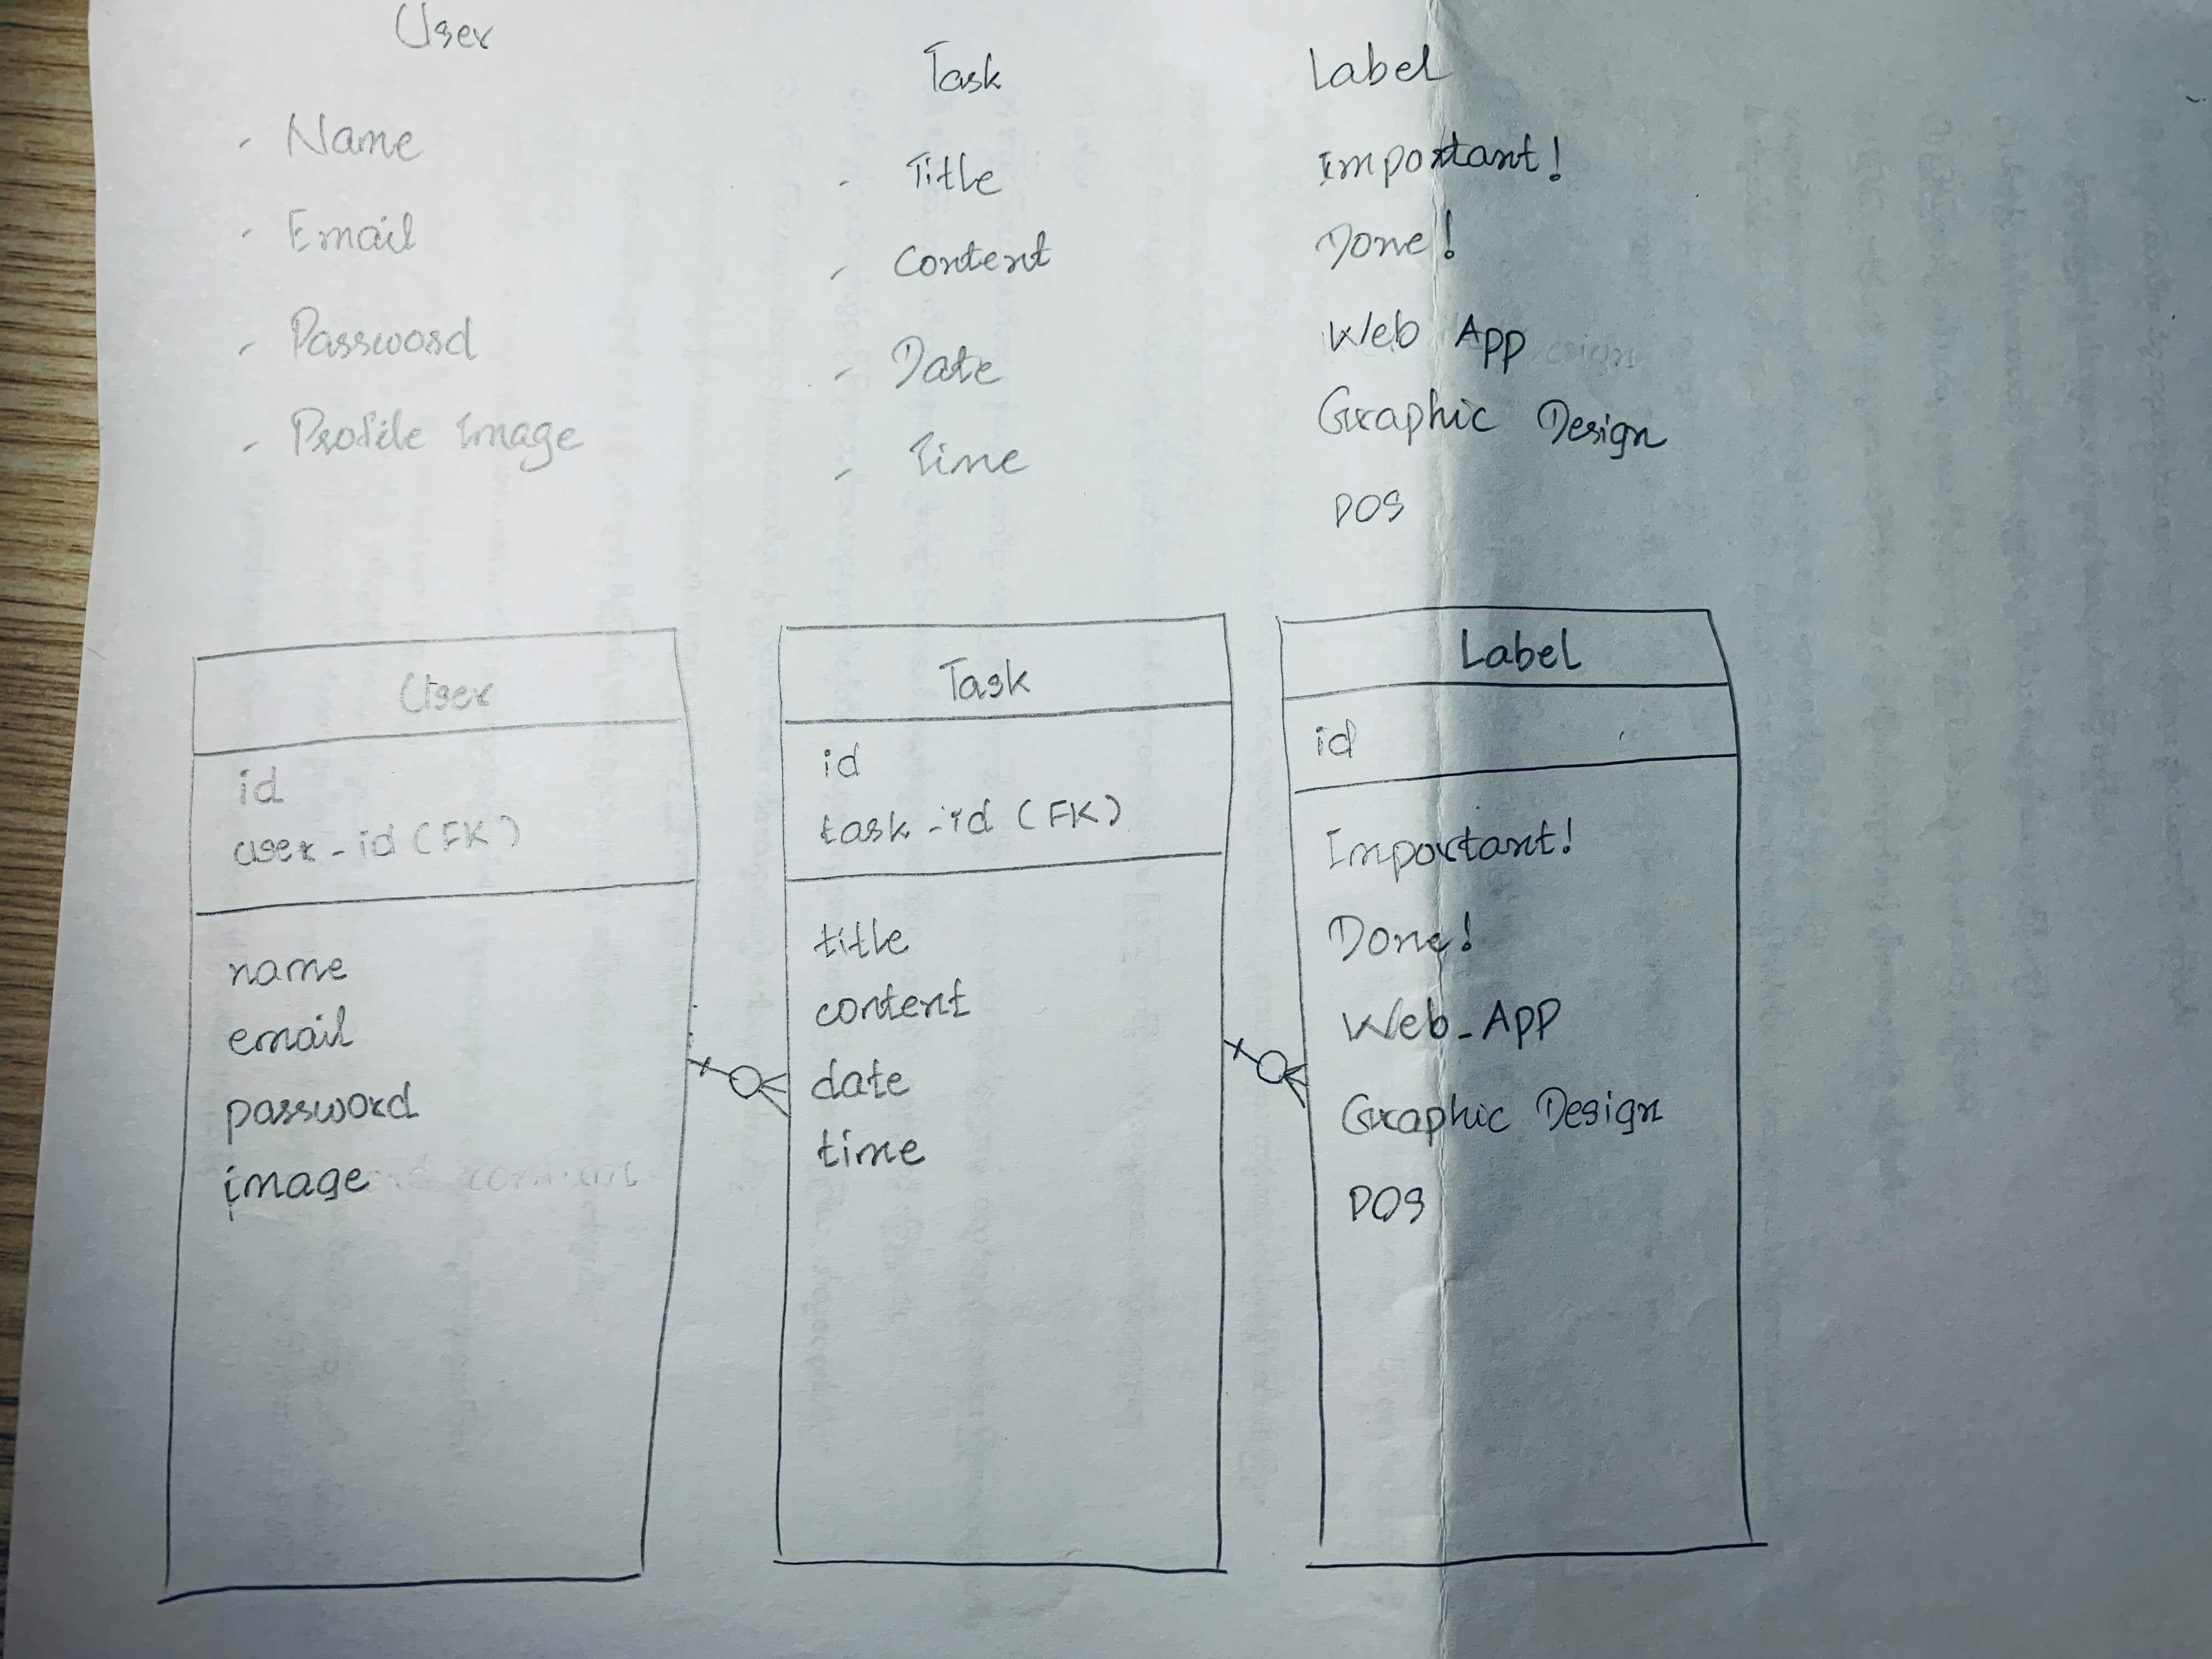 User
Name
Email
Password
Profile Image
Task
Title
Content
Date
Time
Label
Important!
Done!
Web App
Graphic Design
POS
User
id
user-id (FK)
name
email
password
image
Task
id
task-id (FK)
title
content
date
time
Label
id
Important!
Done!
Web-App
Graphic Design
POS